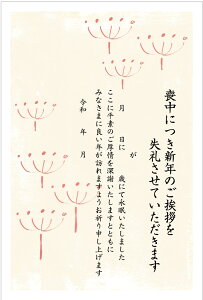 喪中につき新年のご挨拶を
失礼させていただきます
が
月　日に　歳にて永眠いたしました
ここに平素のご厚情を深謝いたしますとともに
みなさまに良い年が訪れますようお祈り申し上げます
令和　年　月